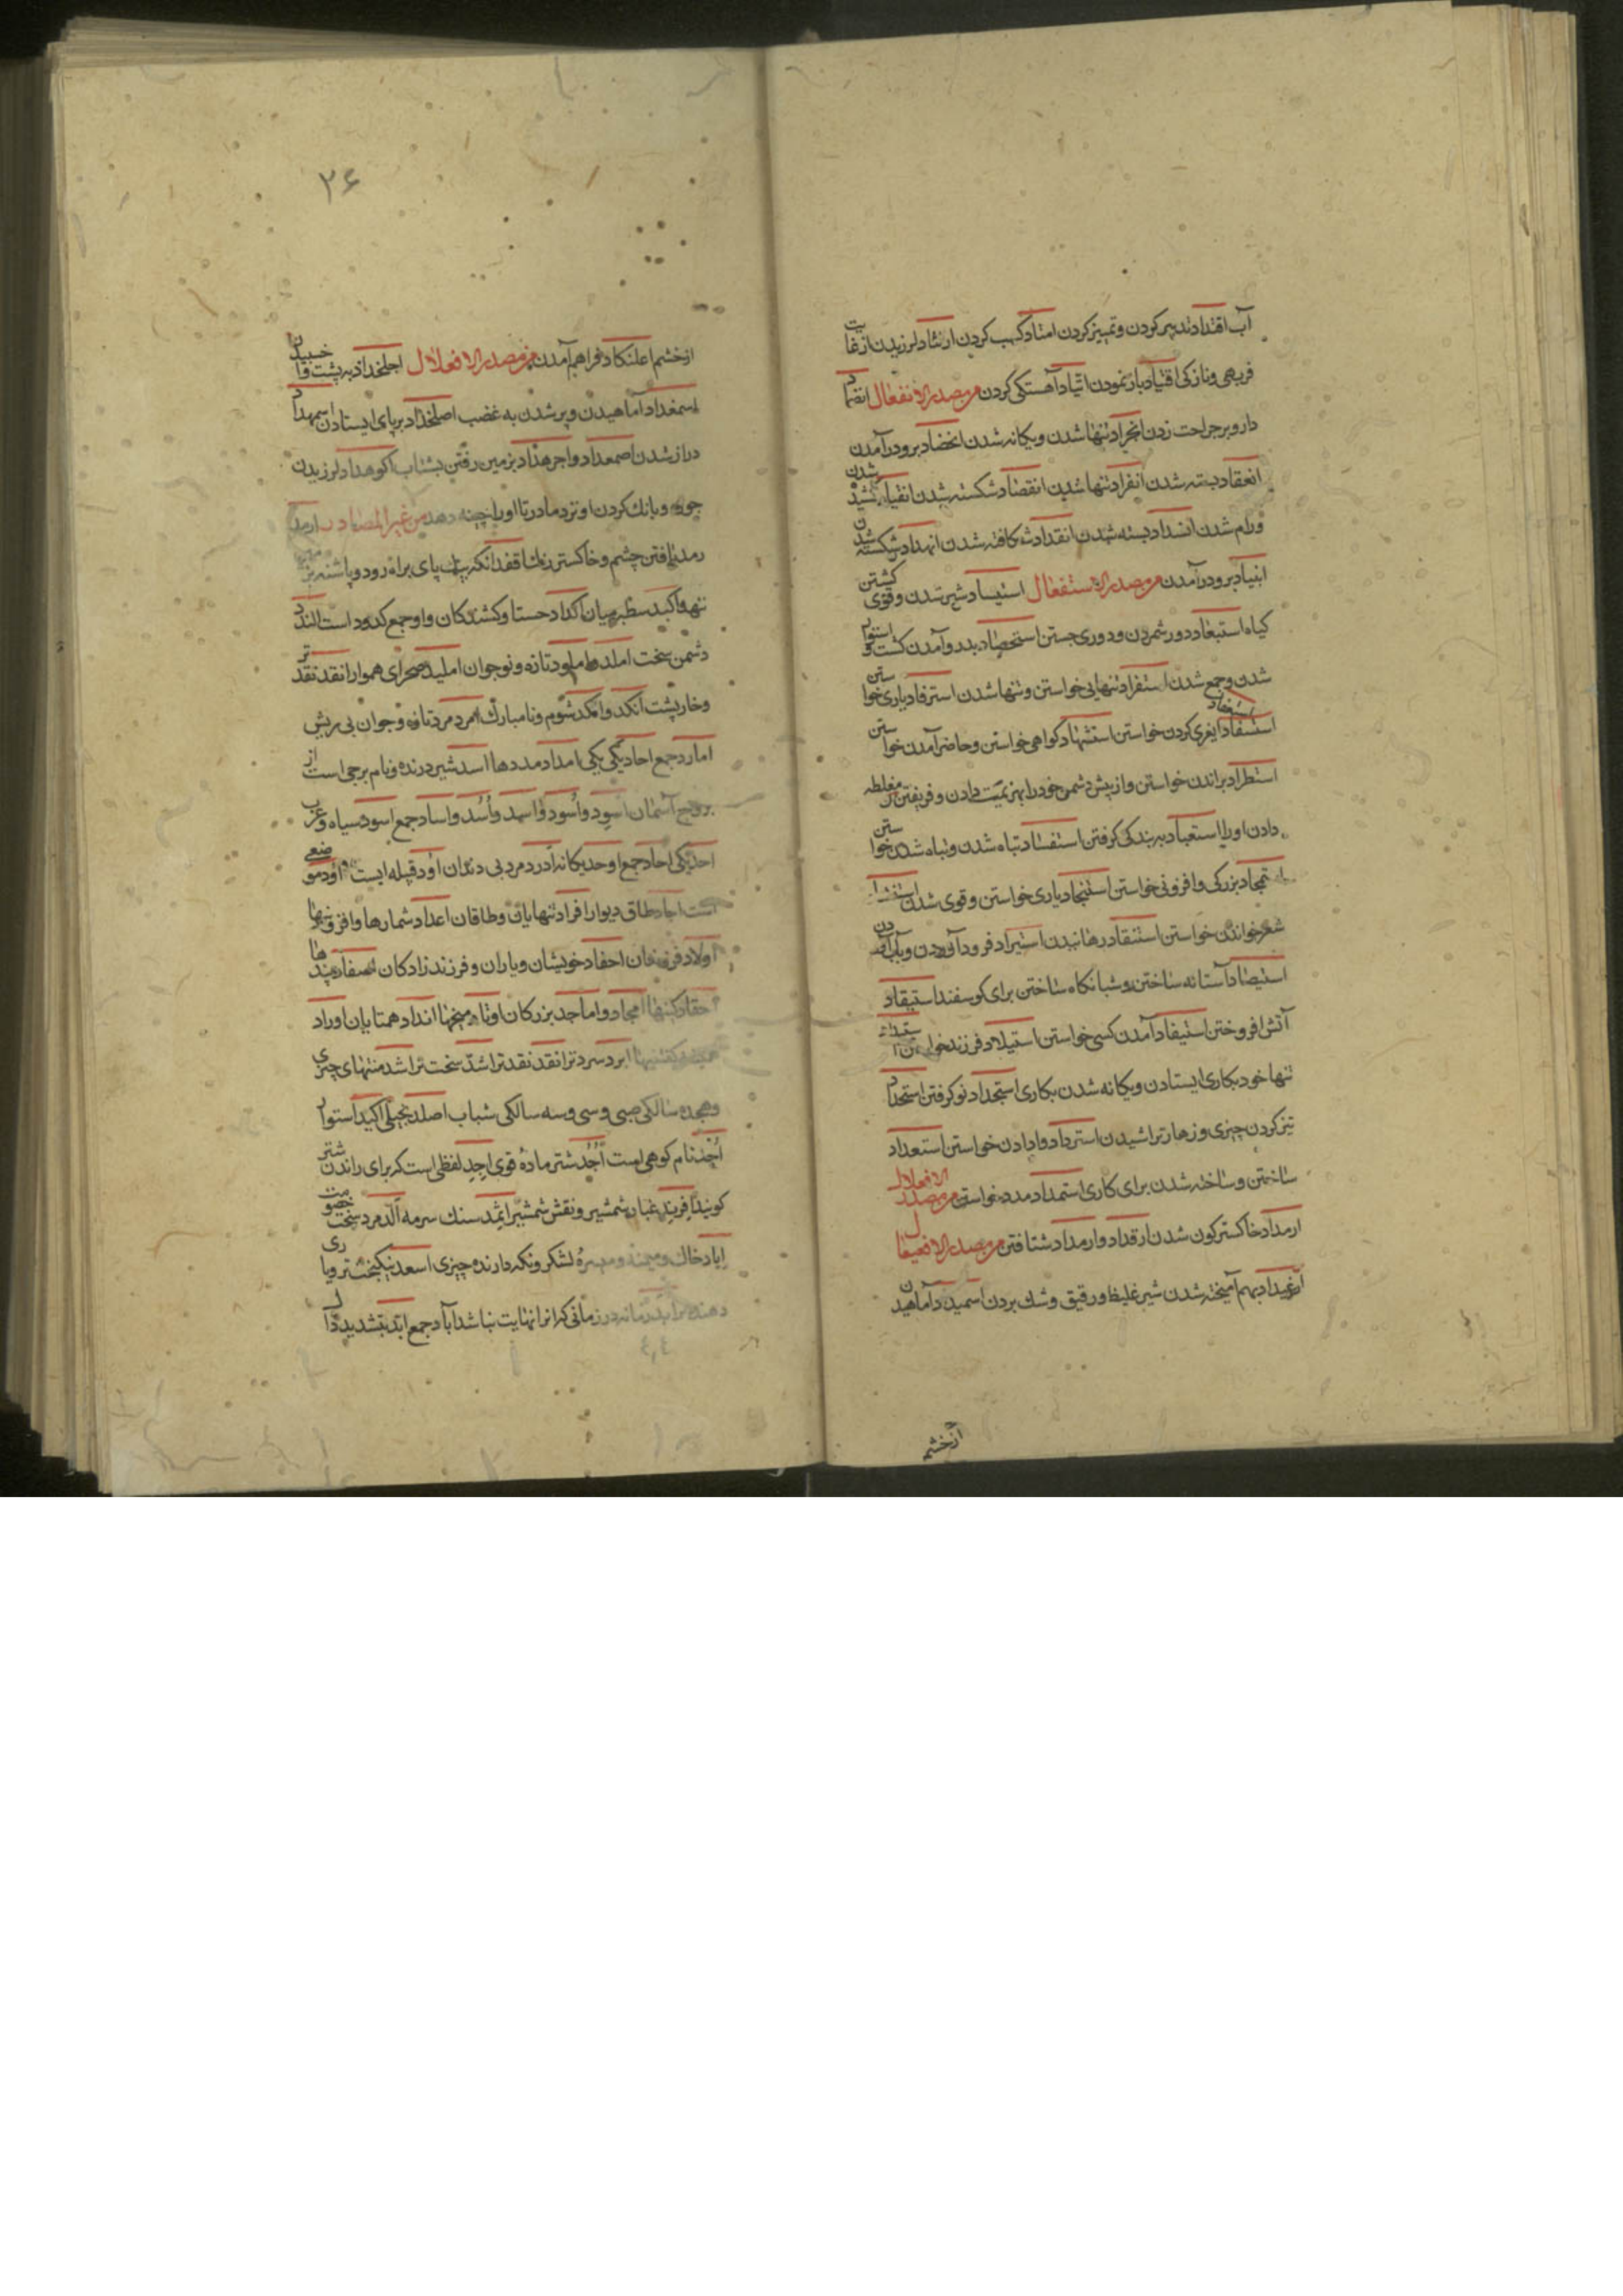 آب اقتداد تدبیر کردن و تمییز کردن امتاد کسب کردن ارتثاد لرزیدن از غایت
فربهی و نازکی اقتیاد باز نمودن اتیاد آهستکی کردن من مصدر الانفعال انضماد
دارو بر جراحت زدن انجراد تنها شدن و یکانه شدن انخضاد برو درآمدن
انعقاد بسته شدن انفراد تنها شدن انقصاد شکسته شدن انقیاد کشیده شدن
و رام شدن انسداد بسته شدن انقداد شکافته شدن انهداد شکسته شدن
انبیاد برو درآمدن من مصدر الاستفعال استیساد شیر شدن و قوی کشتن
کیاه استبعاد دور شمردن و دوری جستن استحصاد بدرو آمدن کشت و استوار
شدن و جمع شدن استفراد تنهایی خواستن و تنها شدن استرفاد یاری خواستن
استسفاد کردن خواستن استشهاد کواهی خواستن و حاضر آمدن خواستن
استطراد براندن خواستن و از پیش دشمن خود را بهزیمت دادن و فریفتن مغلطه
دادن او را استعباد ببندکی کرفتن استفساد تباه شدن و تباه شدن خواستن
استمجاد بزرکی و افزونی خواستن استنجاد یاری خواستن و قوی شدن استنشاد
شعر خواندن خواستن استنقاذ رهانیدن استیراد فرود آوردن و بآب
استیصاد آستانه ساختن و شبانکاه ساختن برای کوسفند استیقاد
آتش افروختن استیفاد آمدن کسی خواستن استیلاد فرزند خواستن
تنها خود بکاری ایستادن و یکانه شدن بکاری استجداد نو کرفتن استحداد
تیز کردن چیزی و زهار تراشیدن استرداد وا دادن خواستن استعداد
ساختن و ساخته شدن برای کاری استمداد مدد خواستن من مصدر الافعلال
ارمداد خاکسترکون شدن ارقداد و ارمداد شتافتن من مصدر الافعیلال
بهم آمیخته شدن شیر غلیظ و رقیق و شک بردن اسمیداد آماهیدن
از خشم
۳۶
از خشم اعلنکاد فراهم آمدن من مصدر الافعلال اجلخداد به پشت وا خسبیدن
اسمغداد آماهیدن و پر شدن به غضب اصلخداد بر پای ایستادن اسمهداد
دراز شدن اصمعداد و اجرهداد بزمین رفتن بشتاب اکوهداد لرزیدن
جوزه و بانک کردن او نزد مادر تا او را چینه دهد من غیر المصادر ارمد
رمد یافتن چشم و خاکستر رنک اقفد آنکه پای براه رود و پاشنه بر
نهد و اکبد سطبر میان اکداد و کشندکان و او جمع کدود است الندد
دشمن سخت املد و املود تازه و نوجوان املید صحرای هموار انقد نقدتر
و خارپشت انکد و انکد شوم و نامبارک امرد مرد تازه و جوان بی ریش
امارد جمع احاد یکی یکی امداد مددها اسد شیر درنده و نام برجی است از
بروج آسمان اسود و اُسود و اسد و اُسُد و اساد جمع اسود سیاه و عرب
احد یکی احاد جمع اوحد یکانه ادرد مرد بی دندان اود قبیله ایست اود موضعی
است اجاد طاق دیوار افراد تنهایان و طاقان اعداد شمارها و افزونیها
اولاد فرزندان احفاد خویشان و یاران و فرزندزادکان اصفاد بندها
احقاد کینها امجاد و اماجد بزرکان اوتاد میخها انداد همتایان اوراد
ابرد سردتر انقد نقدتر اشد سخت تر اشد منتهای چیزی
و هجده سالکی صبی و سی و سه سالکی شباب اصلد بخیل اکید استوار
اُحُد نام کوهی است اُجُد شتر مادهٔ قوی اِجِد لفظی است که برای راندن شتر
کویند افرند غبار شمشیر و نقش شمشیر اثمد سنک سرمه الدّ مرد سخت خصومت
ایاد خاک و میمنه و میسرهٔ لشکر و نکه دارنده چیزی اسعد نیکبخت تر و یاری
دهنده تر ابد زمانه در زمانی که آنرا نهایت نباشد آباد جمع ابد بتشدید دال